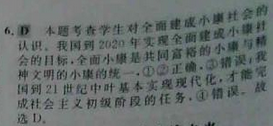 6. D 本题考查学生对全面建成小康社会的
认识。我国到2020年实现全面建成小康社
会的目标,全面小康是共同富裕的小康与精
神文明的小康的统一,①②正确,③错误;我
国到21世纪中叶基本实现现代化,才能完
成社会主义初级阶段的任务,④错误。故
选D。